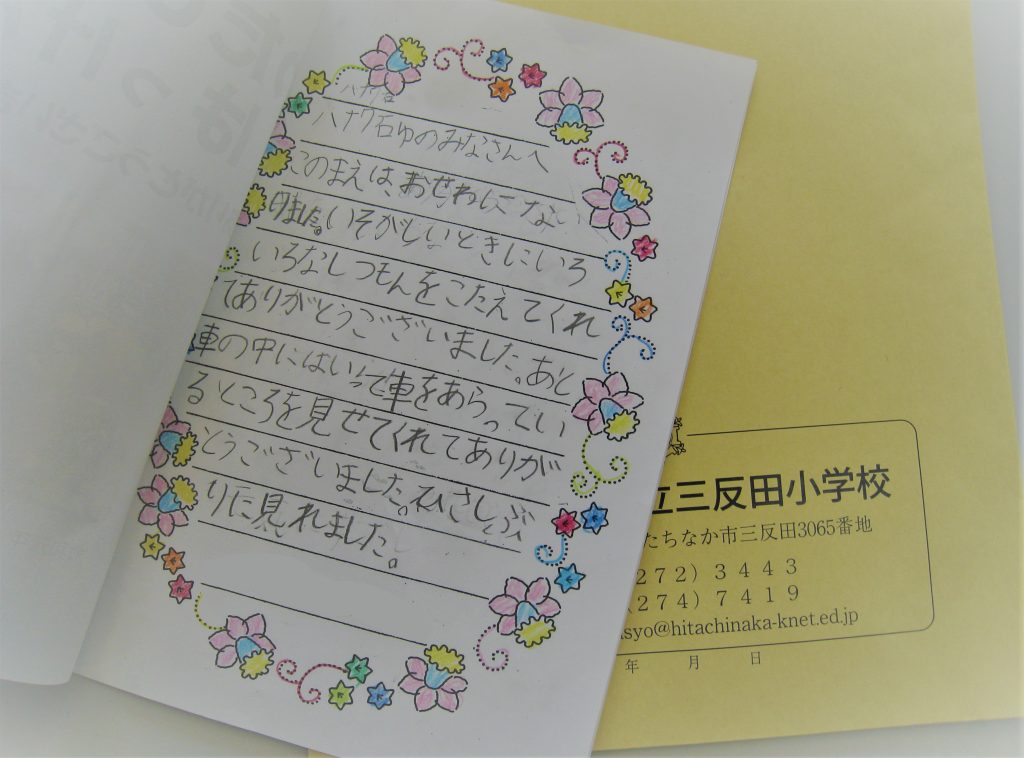 ハナワ石ゆのみなさんへ
このまえは、おせわになり
ました。いそがしいときにいろ
いろなしつもんをこたえてくれ
てありがとうございました。あと
車の中にはいって車をあらってい
るところを見せてくれてありが
とうございました。ひさしぶ
りに見れました。
立三反田小学校
たちなか市三反田3065番地
272）３４４３
（274）７４１９
syo@hitachinaka-knet.ed.jp
年　月　日